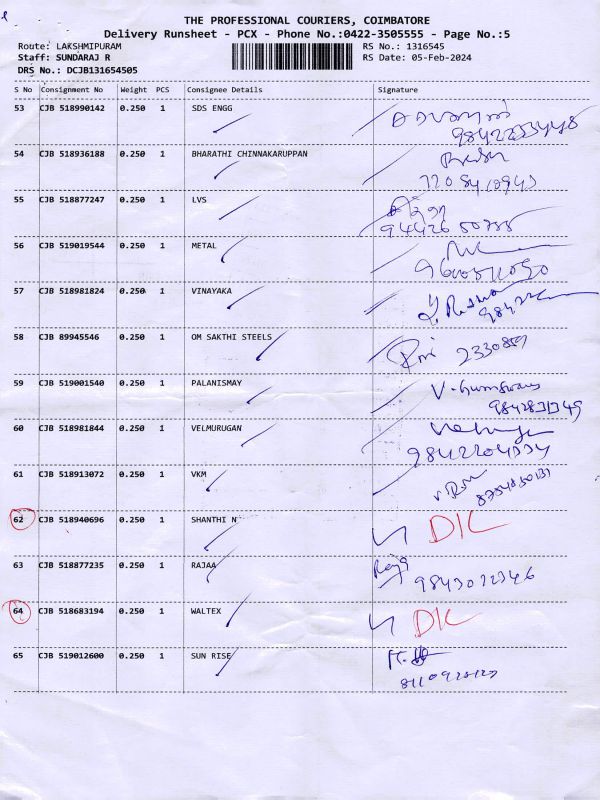 THE PROFESSIONAL COURIERS, COIMBATORE
Delivery Runsheet - PCX - Phone No.:0422-3505555 - Page No.:5
Route: LAKSHMIPURAM RS No.: 1316545
Staff: SUNDARAJ R RS Date: 05-Feb-2024
DRS No.: DCJB131654505
S No Consignment No Weight PCS Consignee Details Signature
53 CJB 518990142 0.250 1 SDS ENGG
54 CJB 518936188 0.250 1 BHARATHI CHINNAKARUPPAN
55 CJB 518877247 0.250 1 LVS
56 CJB 519019544 0.250 1 METAL
57 CJB 518981824 0.250 1 VINAYAKA
58 CJB 89945546 0.250 1 OM SAKTHI STEELS
2330859
59 CJB 519001540 0.250 1 PALANISMAY
60 CJB 518981844 0.250 1 VELMURUGAN
61 CJB 518913072 0.250 1 VKM
62 CJB 518940696 0.250 1 SHANTHI N DIL
63 CJB 518877235 0.250 1 RAJAA
9843072346
64 CJB 518683194 0.250 1 WALTEX DIL
65 CJB 519012600 0.250 1 SUN RISE